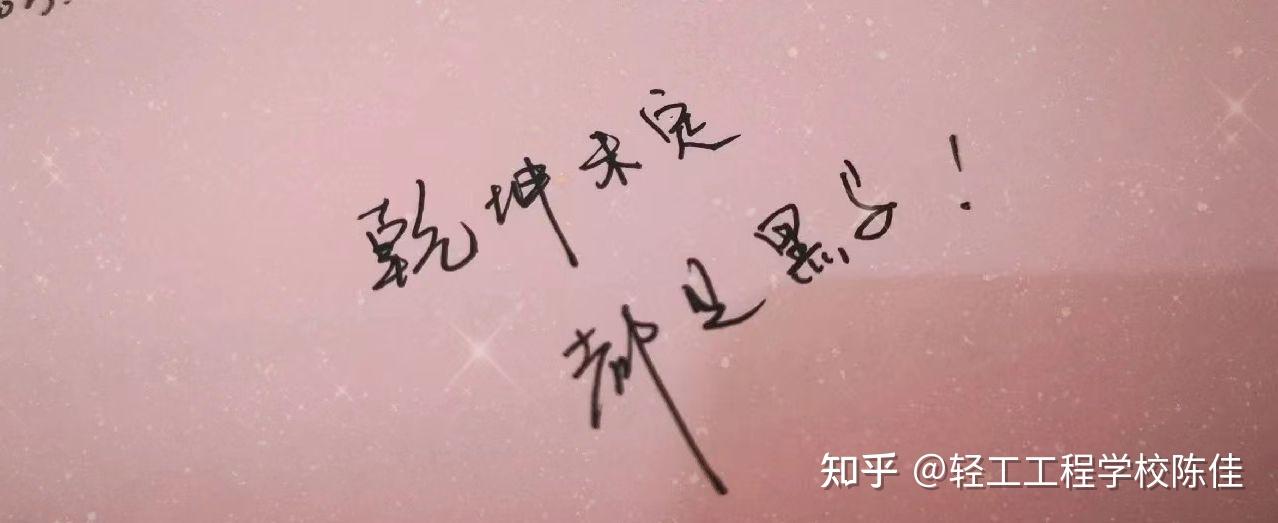 乾坤未定
都是黑马!
知乎 @轻工工程学校陈佳